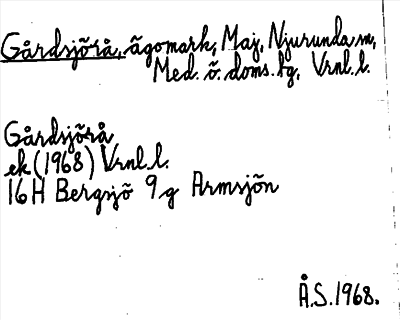 Gårdsjörå, ägomark, Maj, Njurunda sn,
Med. ö. doms. hg, Vrnl. l.
Gårdsjörå
ek (1968) Vrnl. l.
16H Bergsjö 9g Armsjön
Å.S. 1968.